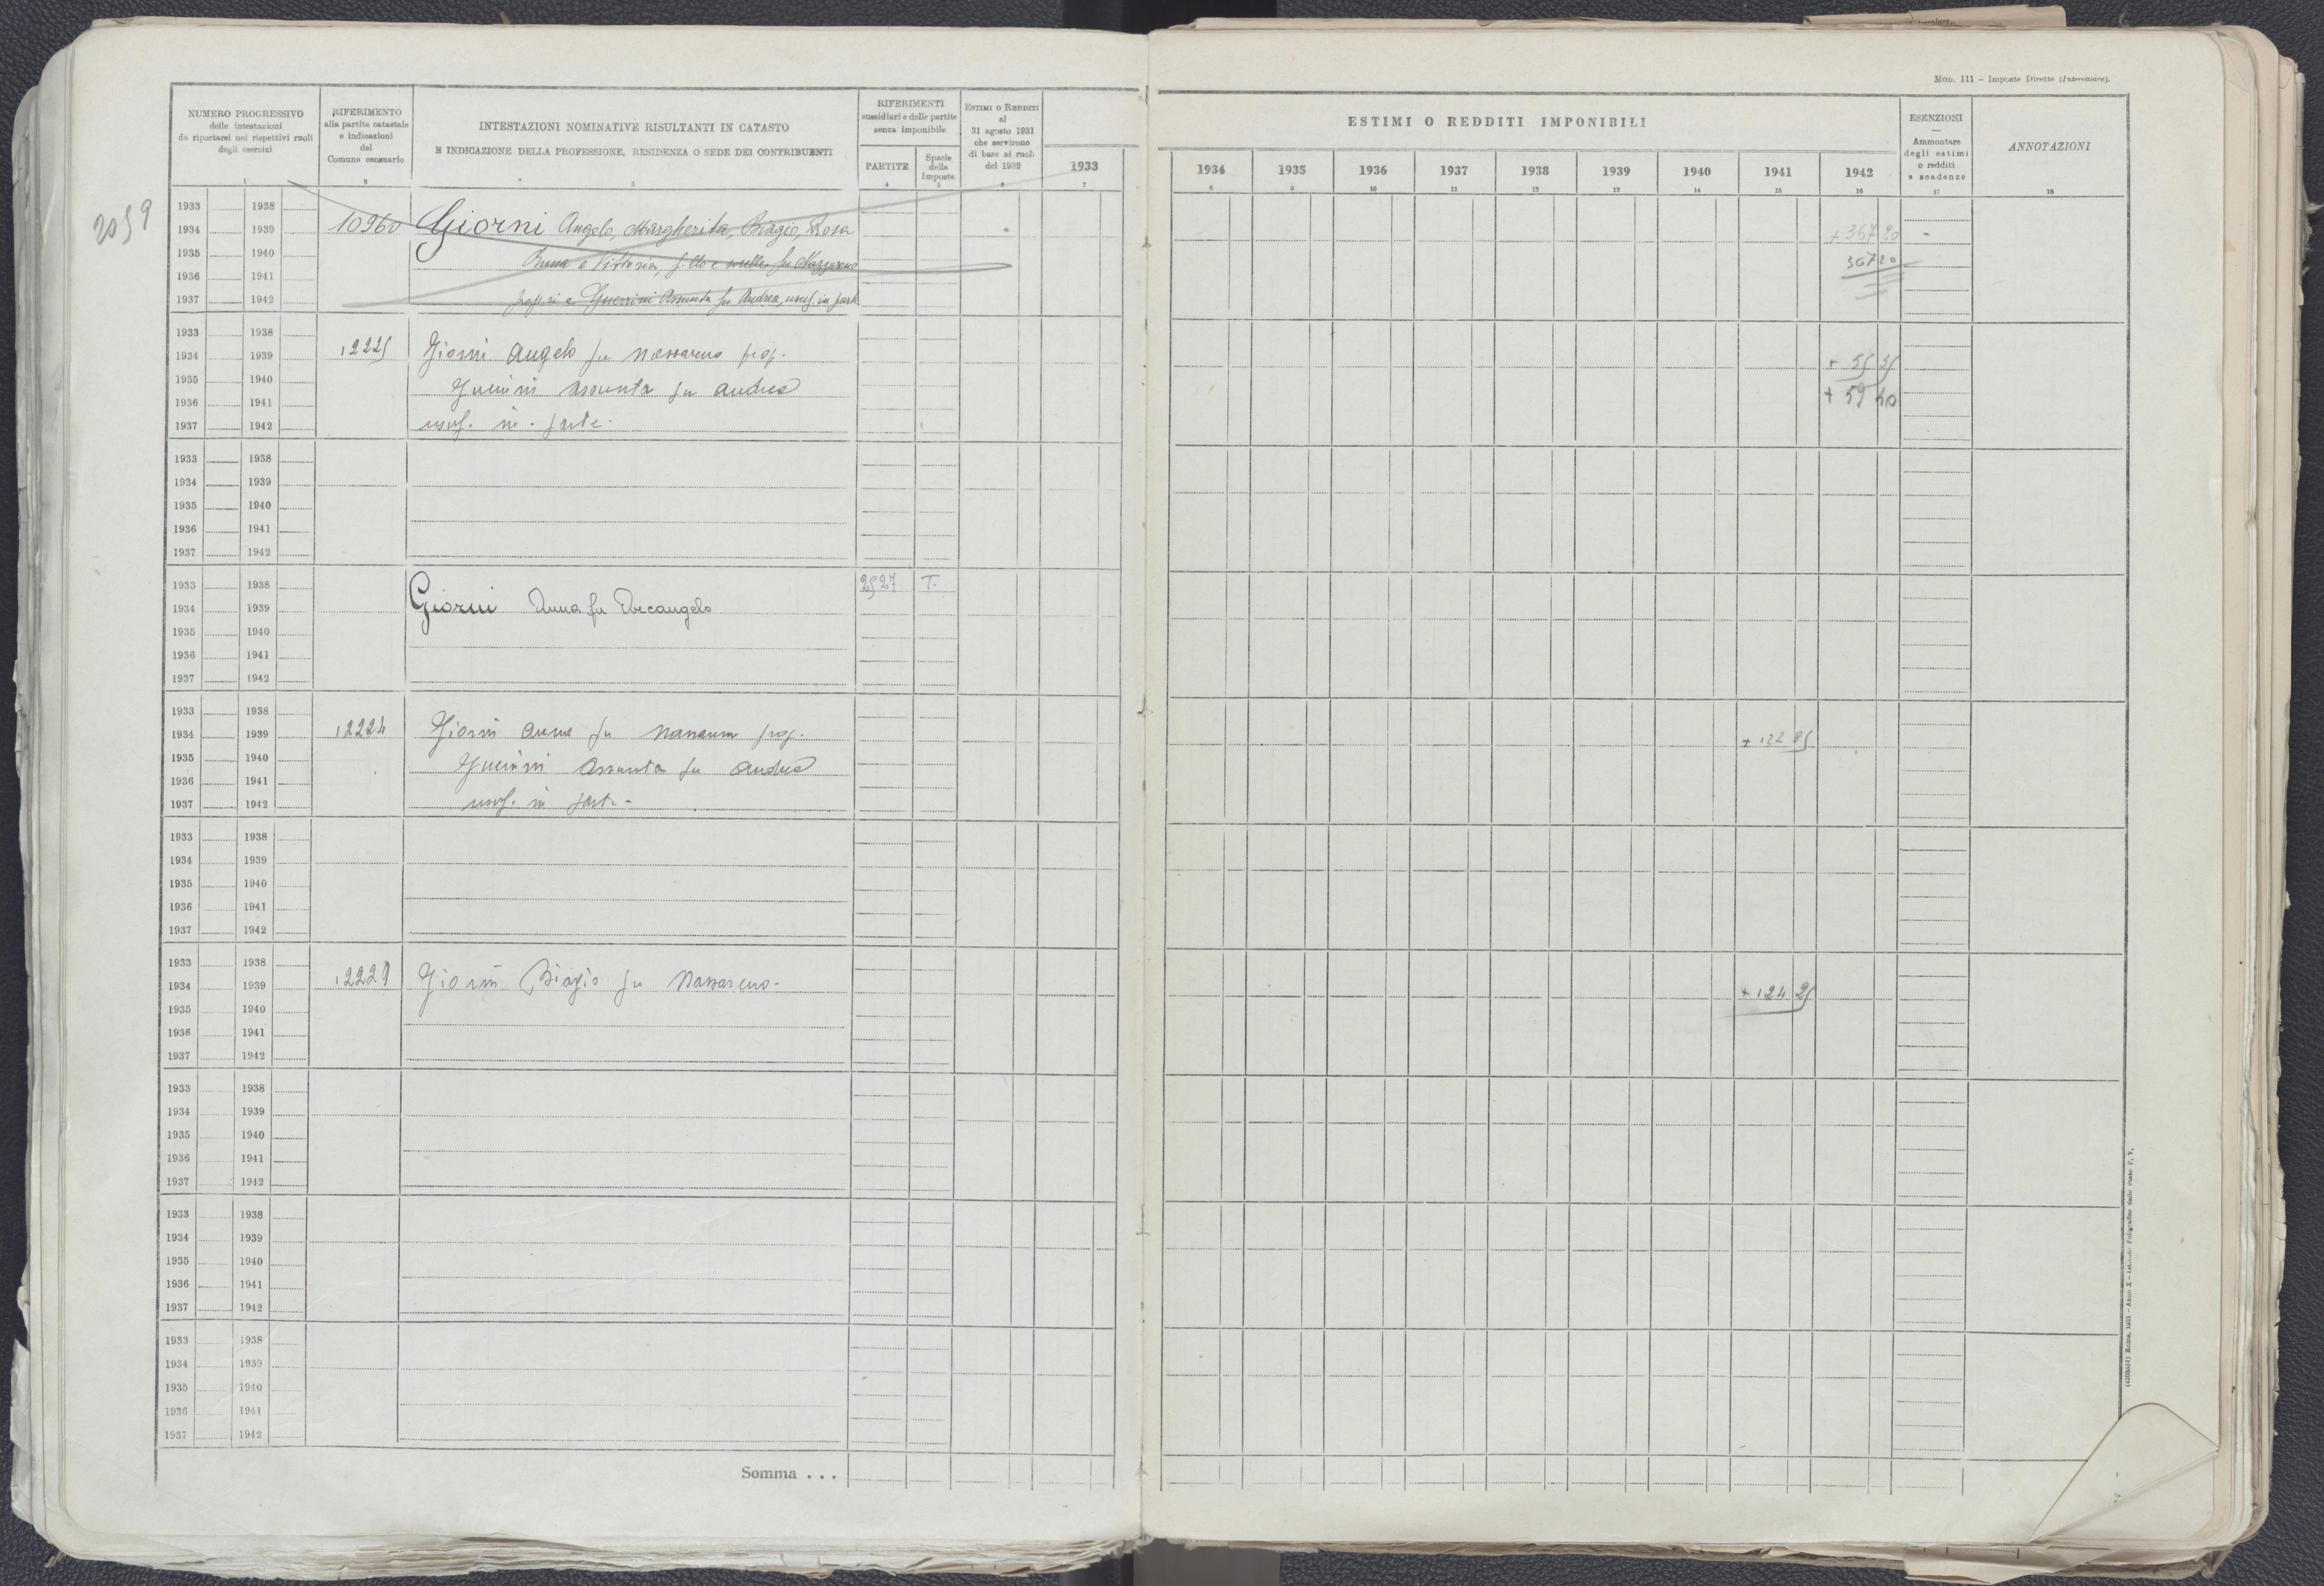 Mod. 111 – Imposte Dirette (Intercalare).
NUMERO PROGRESSIVO
delle intestazioni
da riportarsi nei rispettivi ruoli
degli esercizi
1
RIFERIMENTO
alla partita catastale
e indicazioni
del
Comune censuario
2
INTESTAZIONI NOMINATIVE RISULTANTI IN CATASTO
E INDICAZIONE DELLA PROFESSIONE, RESIDENZA O SEDE DEI CONTRIBUENTI
3
RIFERIMENTI
sussidiari e delle partite
senza imponibile
PARTITE
4
Specie
della
Imposta
5
ESTIMI O REDDITI
al
31 agosto 1931
che servirono
di base ai ruoli
del 1932
6
1933
7
ESTIMI O REDDITI IMPONIBILI
1934 1935 1936 1937 1938 1939 1940 1941 1942
8 9 10 11 12 13 14 15 16
ESENZIONI
—
Ammontare
degli estimi
o redditi
e scadenze
17
ANNOTAZIONI
18
2059
1933 1938
1934 1939 10960 Giorni Angelo, Margherita, Biagio, Rosa + 367 20
1935 1940 e Vittoria, f.llo e sorelle fu Nazzareno 367 20
1936 1941
1937 1942 propri e Guerrini Assunta fu Andrea, usuf. in parte
1933 1938
1934 1939 12225 Giorni Angelo fu Nazzareno prop. + 55 35
1935 1940 Guerrini Assunta fu Andrea + 59 40
1936 1941
1937 1942 usuf. in parte.
1933 1938
1934 1939
1935 1940
1936 1941
1937 1942
1933 1938 2527 T.
1934 1939 Giorni Anna fu Arcangelo
1935 1940
1936 1941
1937 1942
1933 1938
1934 1939 12224 Giorni Anna fu prop. + 122 85
1935 1940 Guerrini Assunta fu Andrea
1936 1941
1937 1942 usuf. in parte
1933 1938
1934 1939
1935 1940
1936 1941
1937 1942
1933 1938
1934 1939 Giorni Biagio fu Nazzareno. + 124 25
1935 1940
1936 1941
1937 1942
1933 1938
1934 1939
1935 1940
1936 1941
1937 1942
1933 1938
1934 1939
1935 1940
1936 1941
1937 1942
1933 1938
1934 1939
1935 1940
1936 1941
1937 1942
Somma . . .